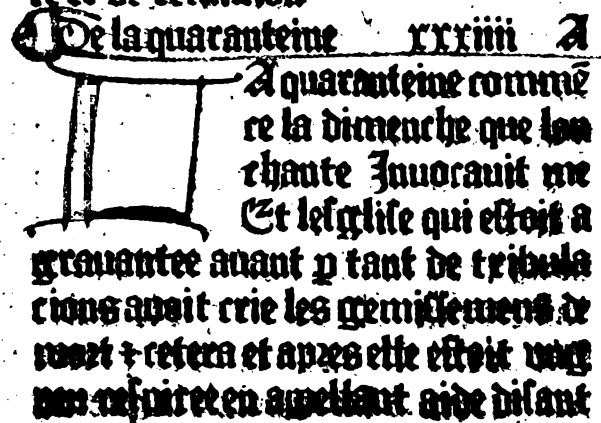 De la quaranteine xxxiiii A
A quaranteine commē
ce la dimenche que lon
chante Inuocauit me
Et lesglise qui estoit a
grauantee auant p tant de tribula
cions auoit crie les gemissemens de
mort ⁊ cetera et apres elle estoit vng
respiree en appellant aide disant